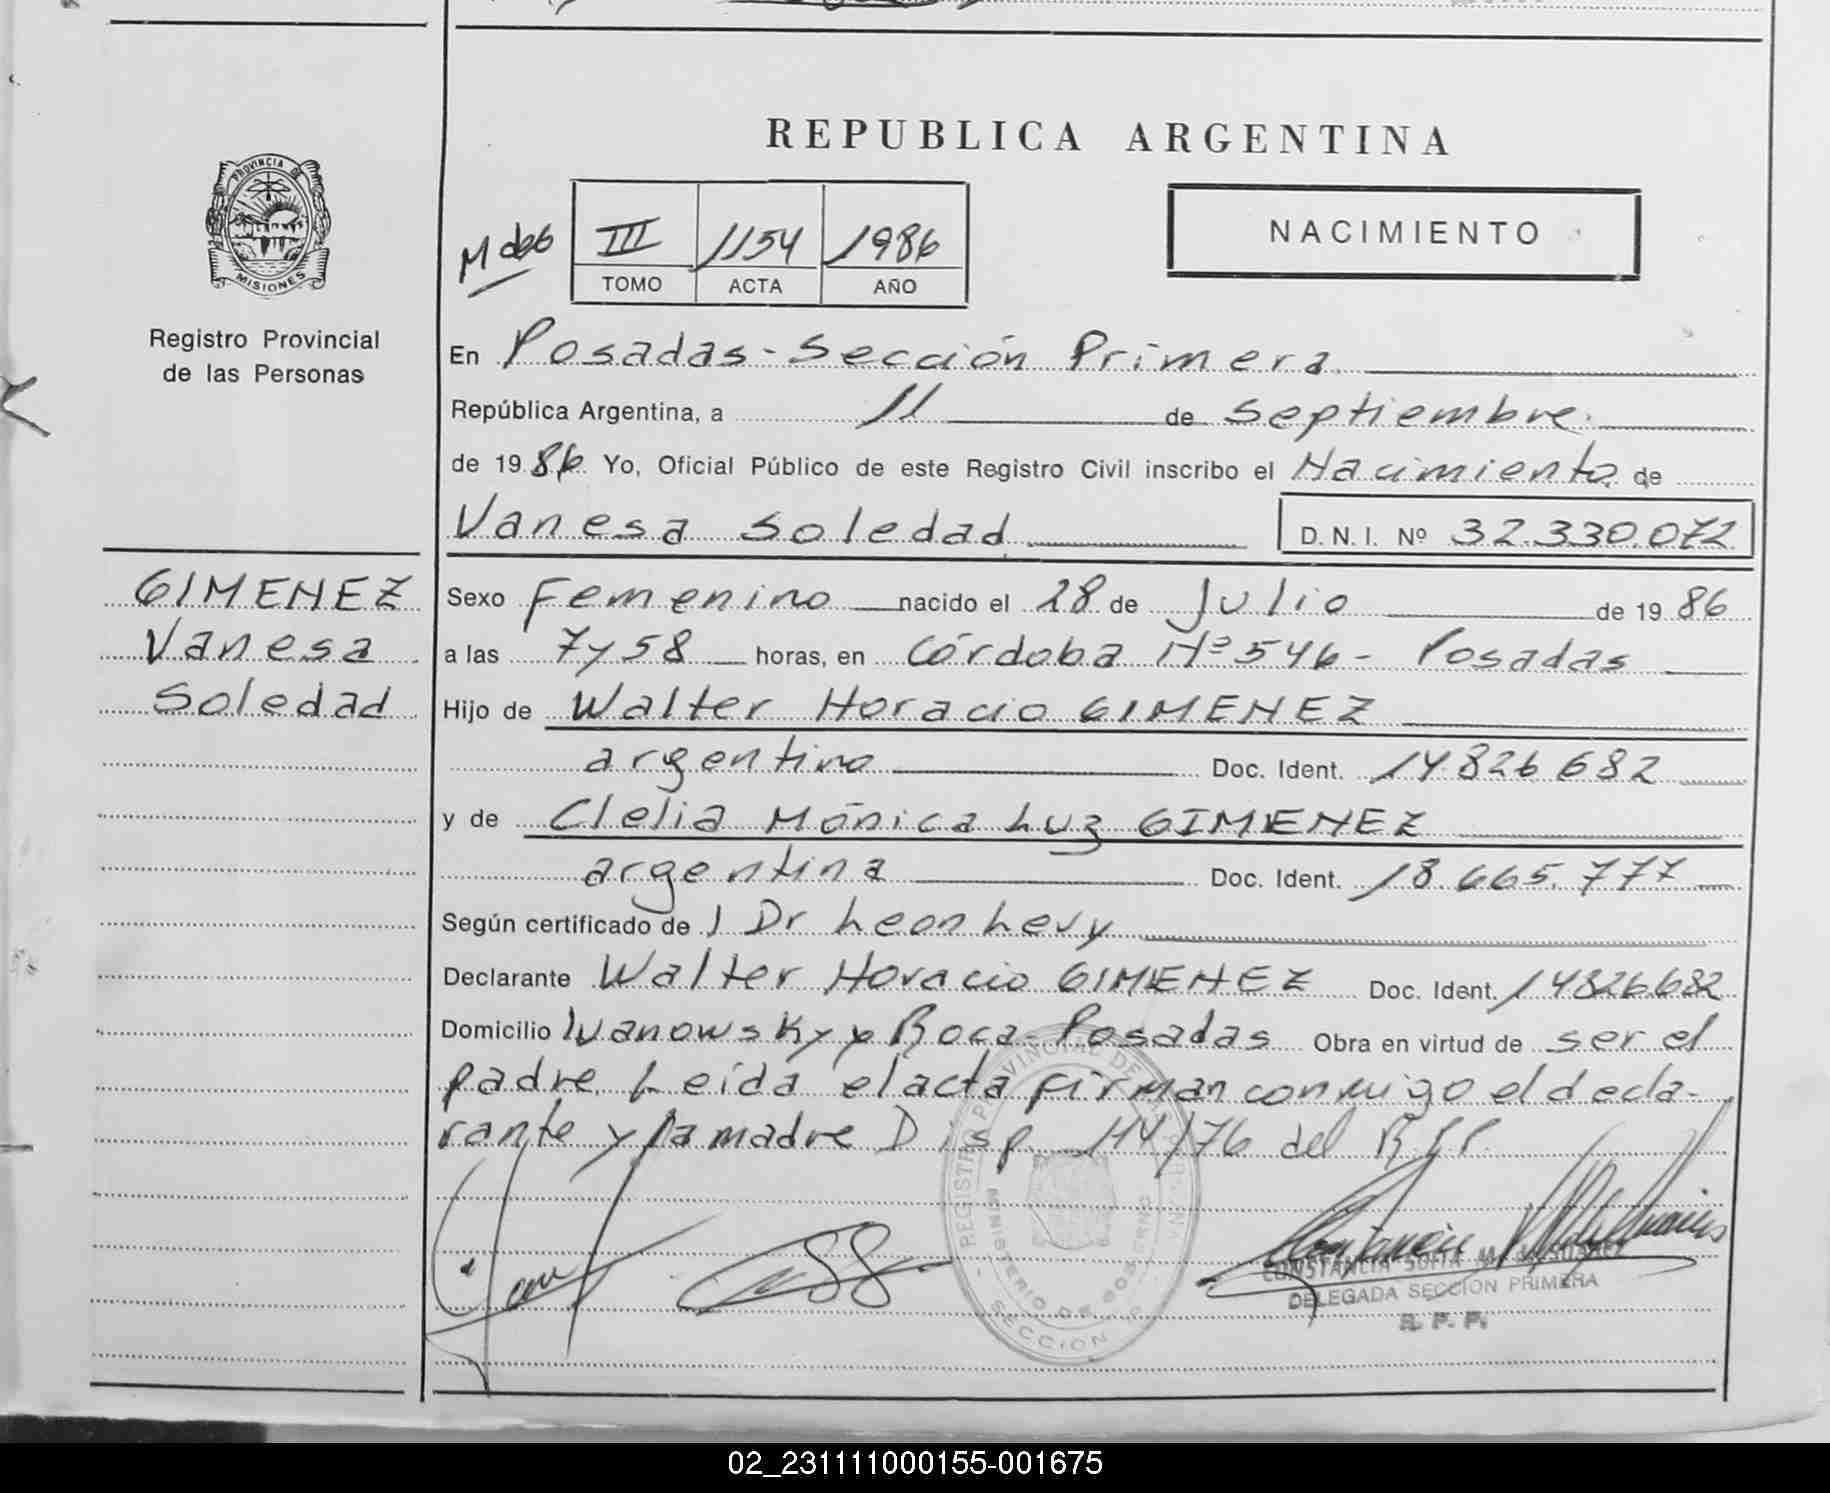 REPUBLICA ARGENTINA
PROVINCIA DE
MISIONES
Registro Provincial
de las Personas
III 1154 1986
TOMO ACTA AÑO
NACIMIENTO
En Posadas - Sección Primera
República Argentina, a 11 de Septiembre
de 1986 Yo, Oficial Público de este Registro Civil inscribo el Nacimiento de
Vanesa Soledad D. N. I. Nº 32.330.072
GIMENEZ
Vanesa
Soledad
Sexo Femenino nacido el 28 de Julio de 1986
a las 7 y 58 horas, en Córdoba Nº 546 - Posadas
Hijo de Walter Horacio GIMENEZ
argentino Doc. Ident. 14.826.682
y de Clelia Mónica Luz GIMENEZ
argentina Doc. Ident. 18.665.777
Según certificado de l Dr Leon Levy
Declarante Walter Horacio GIMENEZ Doc. Ident. 14826682
Domicilio Ivanowsky y Roca - Posadas Obra en virtud de ser el
padre. Leída el acta firman conmigo el decla-
rante y la madre Disp. 114/76 del R.P.P.
REGISTRO PROVINCIAL DE LAS PERSONAS
MINISTERIO DE GOBIERNO
SECCION 1
CONSTANCIA SOFIA M. de SUAREZ
DELEGADA SECCION PRIMERA
R. P. P.
02_231111000155-001675